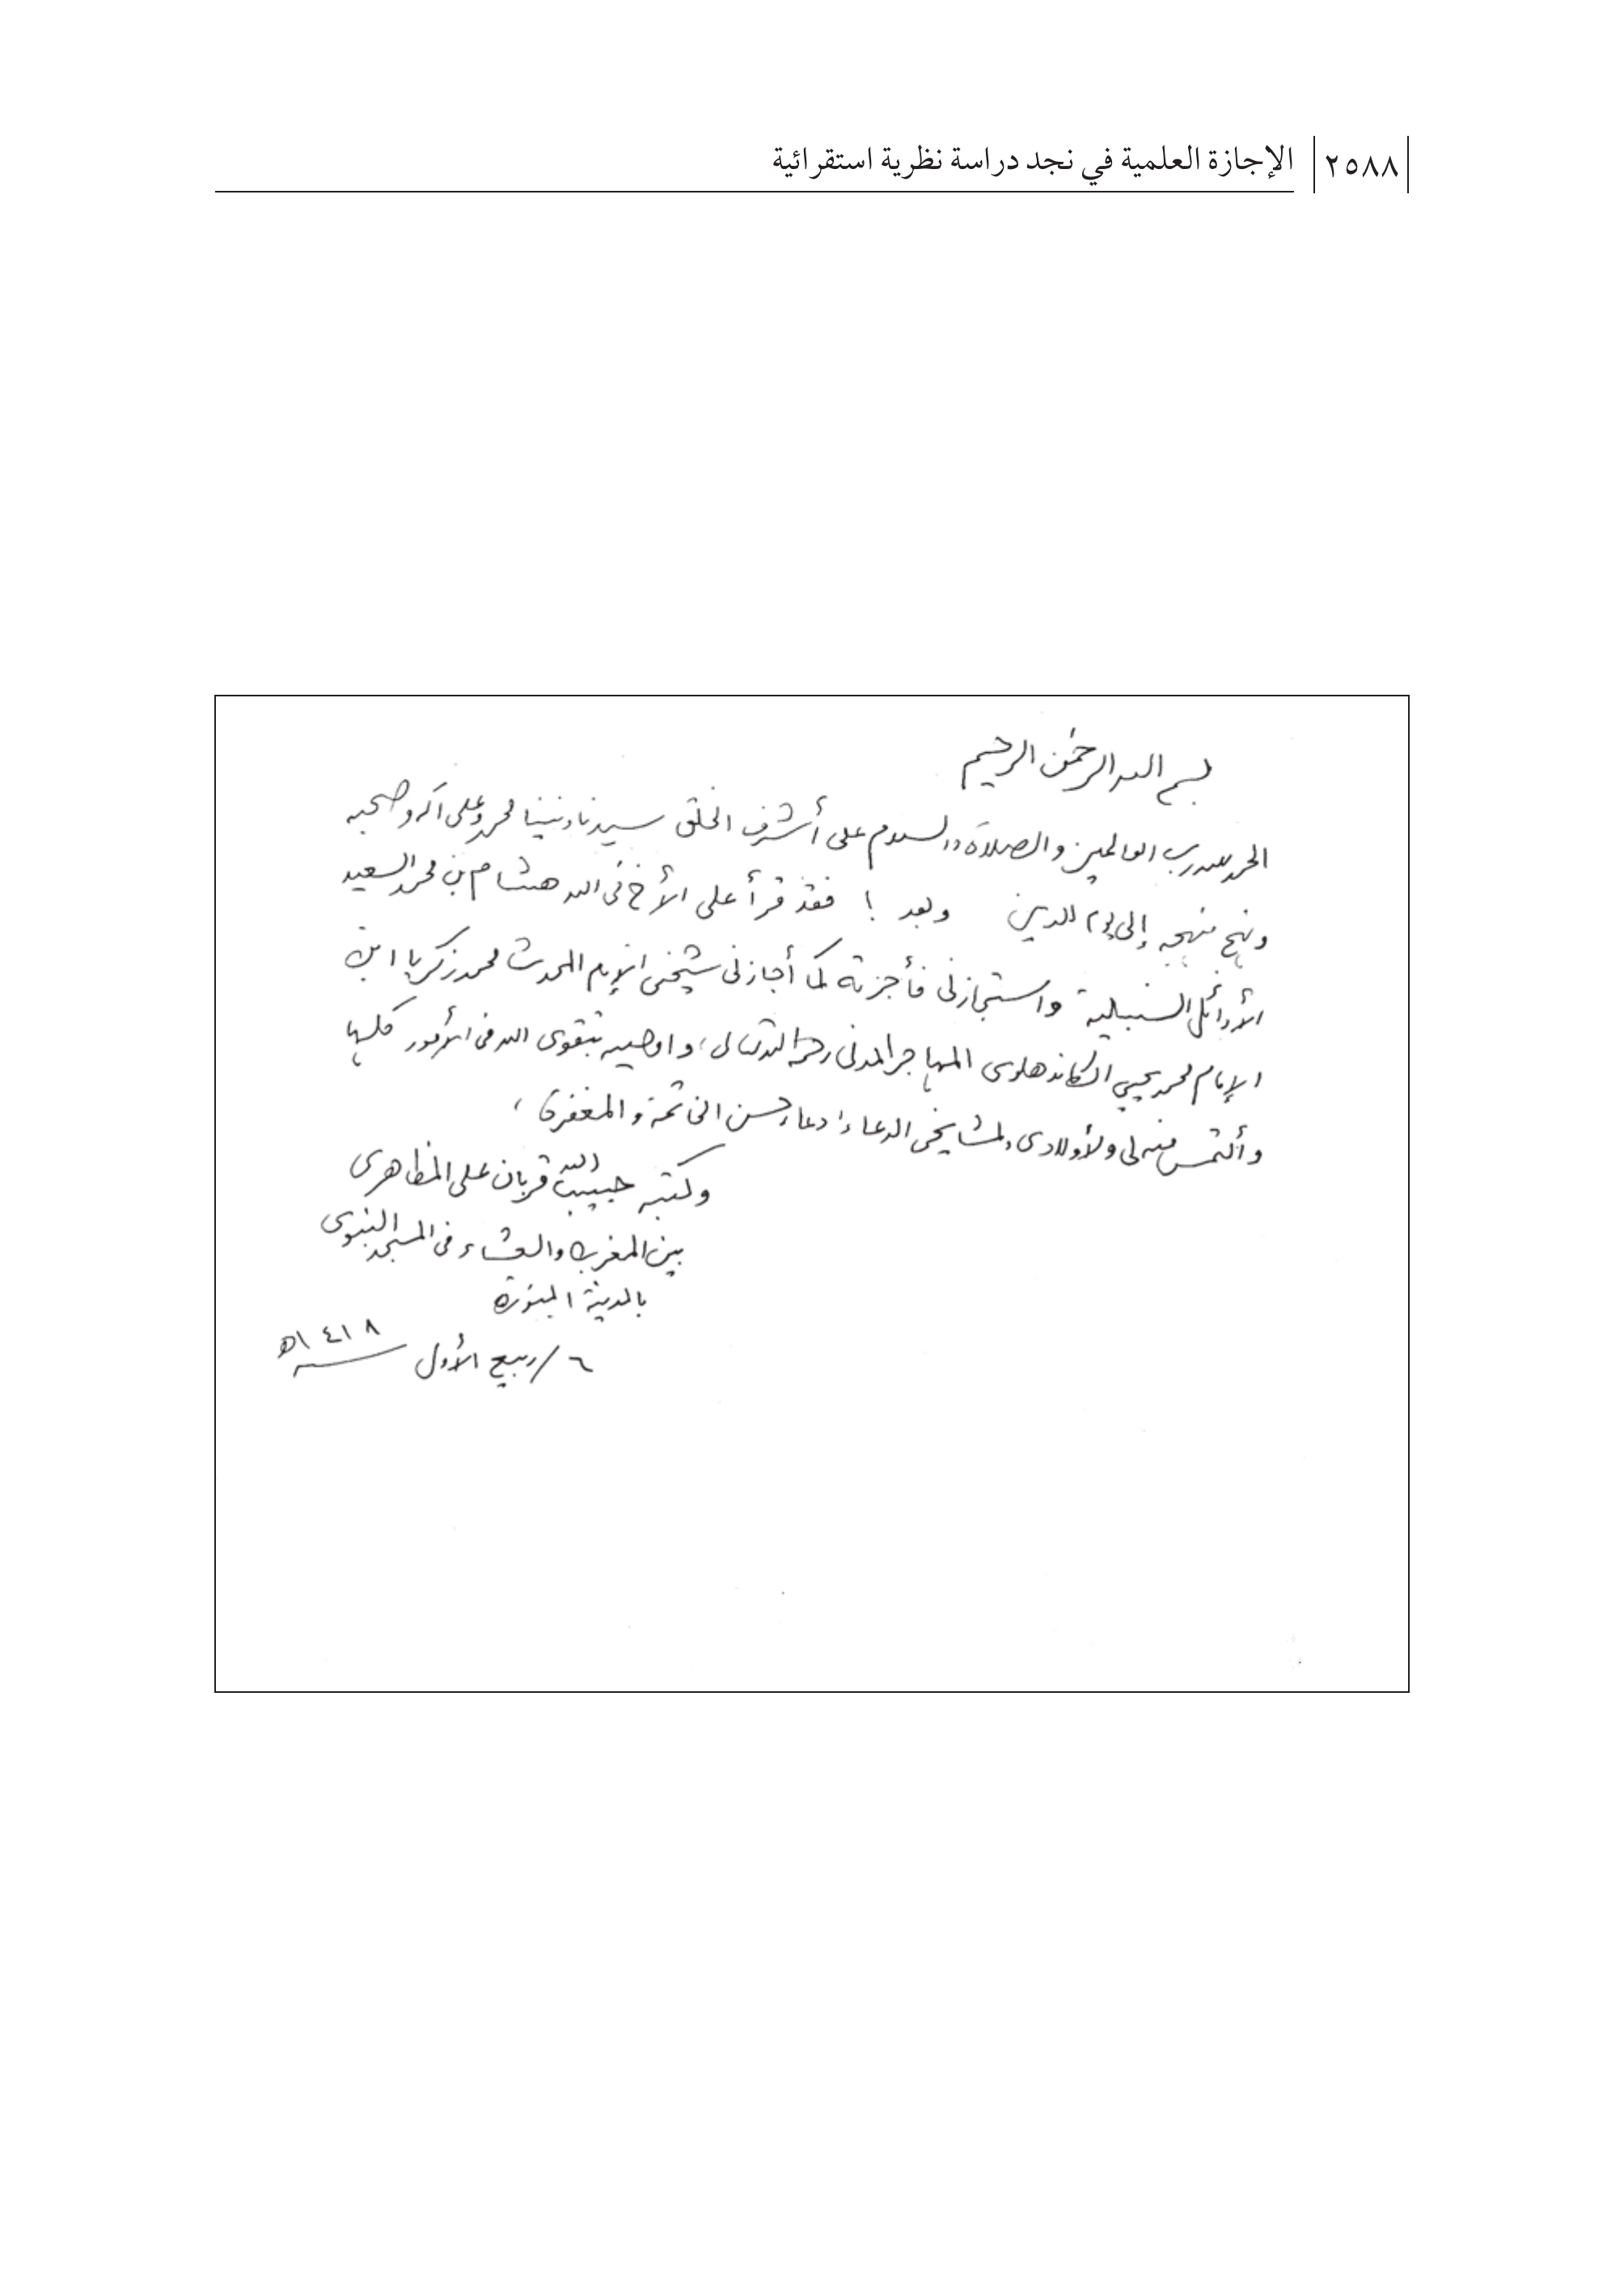 ٢٥٨٨ الإجازة العلمية في نجد دراسة نظرية استقرائية
بسم الله الرحمن الرحيم
الحمد لله رب العالمين والصلاة والسلام على أشرف الخلق سيدنا ونبينا محمد وعلى آله وصحبه
ونهج منهجه إلى يوم الدين وبعد ! فقد قرأ على الأخ في الله هشام بن محمد السعيد
الأوائل السنبلية واستجازنى فأجزته كما أجازنى شيخى الإمام المحدث محمد زكريا ابن
الإمام محمد يحيي الكاندهلوى المهاجر المدنى رحمه الله تعالى، وأوصيه بتقوى الله فى الأمور كلها
وألتمس منه لى ولأولادى ولمشايخى الدعاء، دعاء حسن الخاتمة والمغفرة،
وكتبه حبيب الله قربان على المظاهرى
بين المغرب والعشاء فى المسجد النبوى
بالمدينة المنورة
٦ / ربيع الأول ١٤١٨ھ